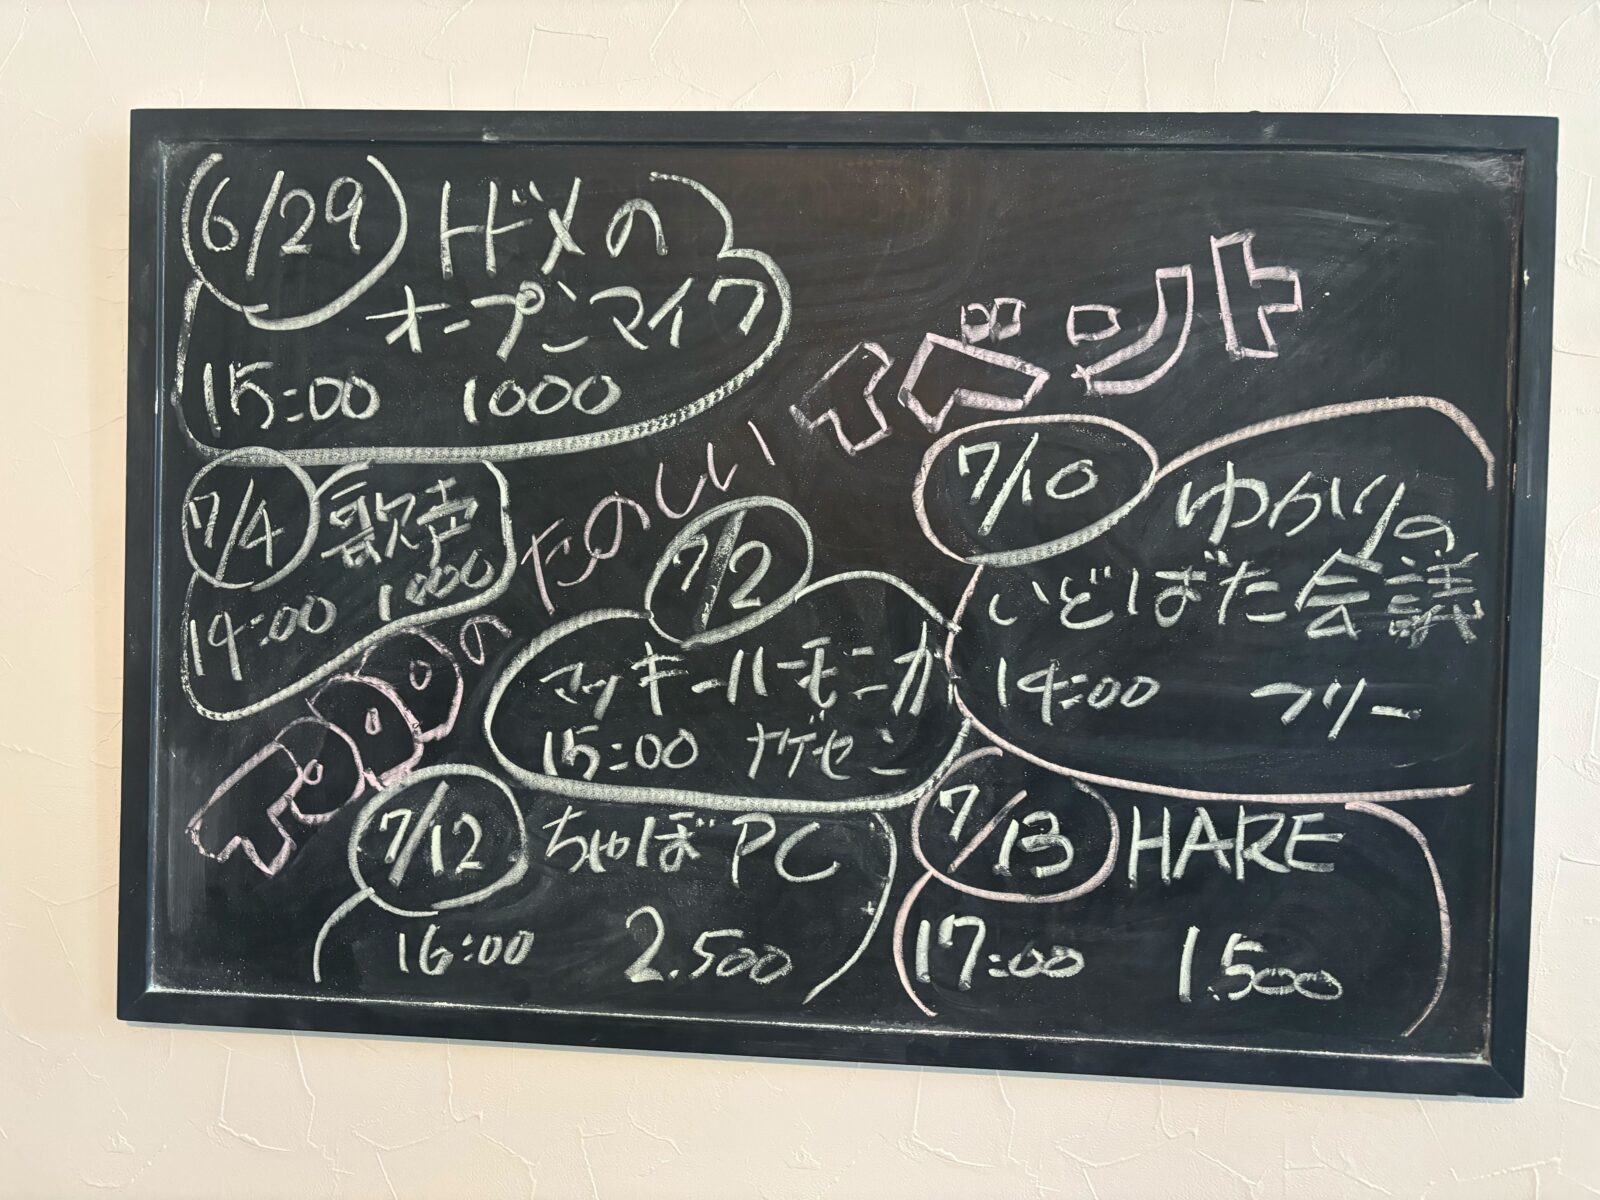 6/29 トドメの
オープンマイク
15:00 1000
7/4 歌声
14:00 1000
の
たのしい
イベント
7/2
マッキーハーモニカ
15:00 ナゲセン
7/10 ゆかりの
いどばた会議
14:00 フリー
7/12 ちゃぼPC
16:00 2.500
7/13 HARE
17:00 1.500